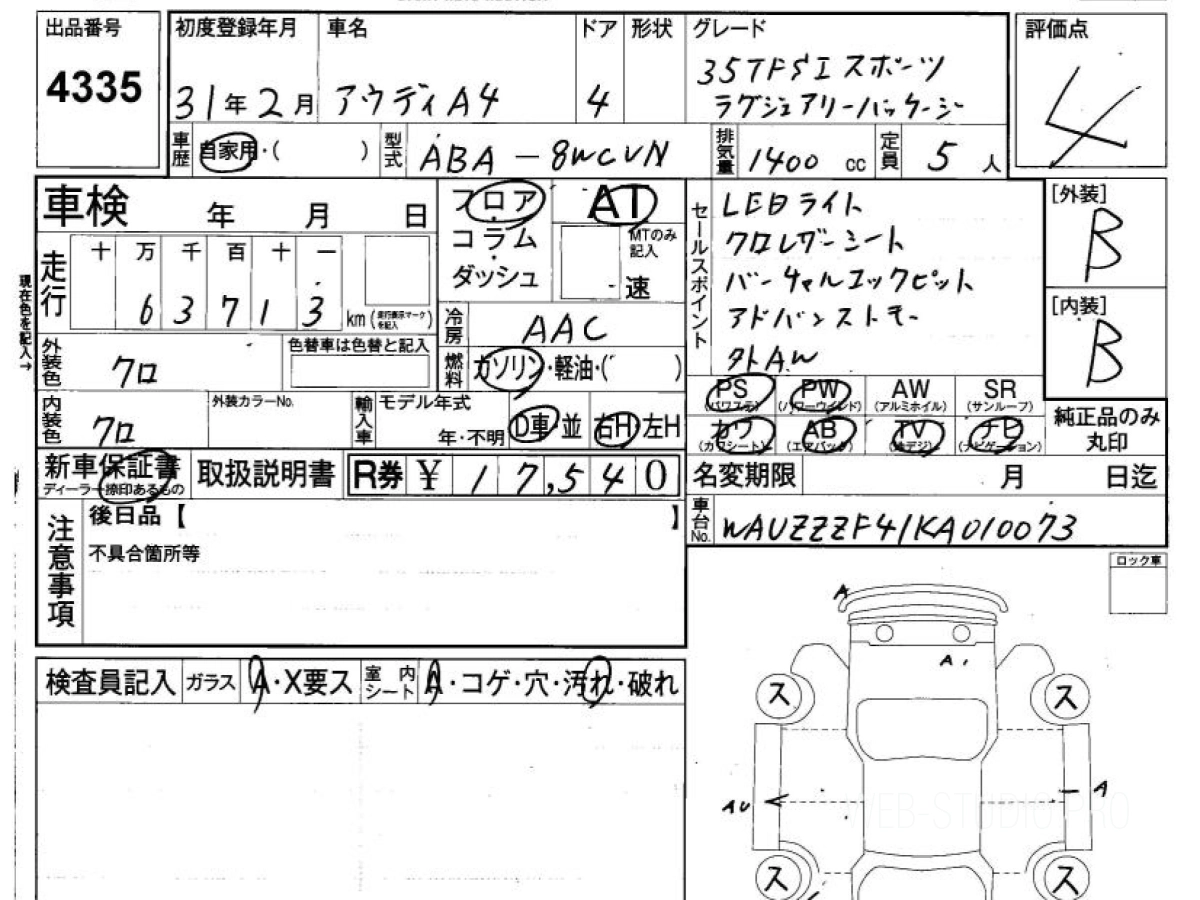 出品番号
4335
初度登録年月
31年2月
車名
アウディA4
ドア
4
形状
グレード
35TFSI スポーツ
ラグジュアリーパッケージ
評価点
4
車歴
自家用・( )
型式
ABA-8WCVN
排気量
1400 cc
定員
5人
車検 年 月 日
走行
十 万 千 百 十 一
6 3 7 1 3
km (走行表示マークを記入)
現在色を記入→
外装色
クロ
色替車は色替と記入
内装色
クロ
外装カラーNo.
フロア・コラム・ダッシュ
AT
MTのみ記入
速
冷房
AAC
燃料
ガソリン・軽油・( )
輸入車
モデル年式
年・不明
D車・並
右H・左H
セールスポイント
LEDライト
クロレザーシート
バーチャルコックピット
アドバンストキー
外AW
[外装]
B
[内装]
B
PS
(パワステ)
PW
(パワーウインド)
AW
(アルミホイル)
SR
(サンルーフ)
カワ
(カワシート)
AB
(エアバック)
TV
(地デジ)
ナビ
(ナビゲーション)
純正品のみ
丸印
新車保証書
ディーラー捺印あるもの
取扱説明書
R券 ¥ 17,540
名変期限 月 日迄
車台No.
WAUZZZF41KA010073
注意事項
後日品【 】
不具合箇所等
ロック車
検査員記入
ガラス
A・X要ス
室内シート
A・コゲ・穴・汚れ・破れ
A
A1
ス
ス
AU
A
ス
ス
WEB-STUDIO.PRO